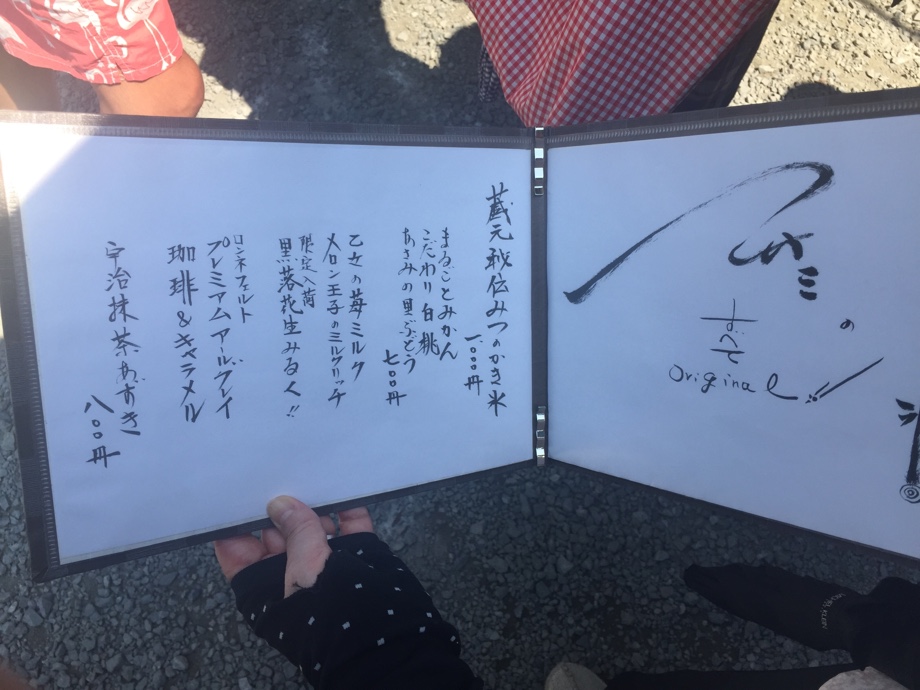 の
すべて
Original!!
蔵元秘伝みつのかき氷
まるごとみかん
一、〇〇〇円
こだわり白桃
あさみの里ぶどう
七〇〇円
乙女の苺ミルク
メロン王子のミルクリッチ
限定入荷
黒落花生みるく!!
ロンネフェルト
プレミアムアールグレイ
珈琲&キャラメル
宇治抹茶あずき
八〇〇円